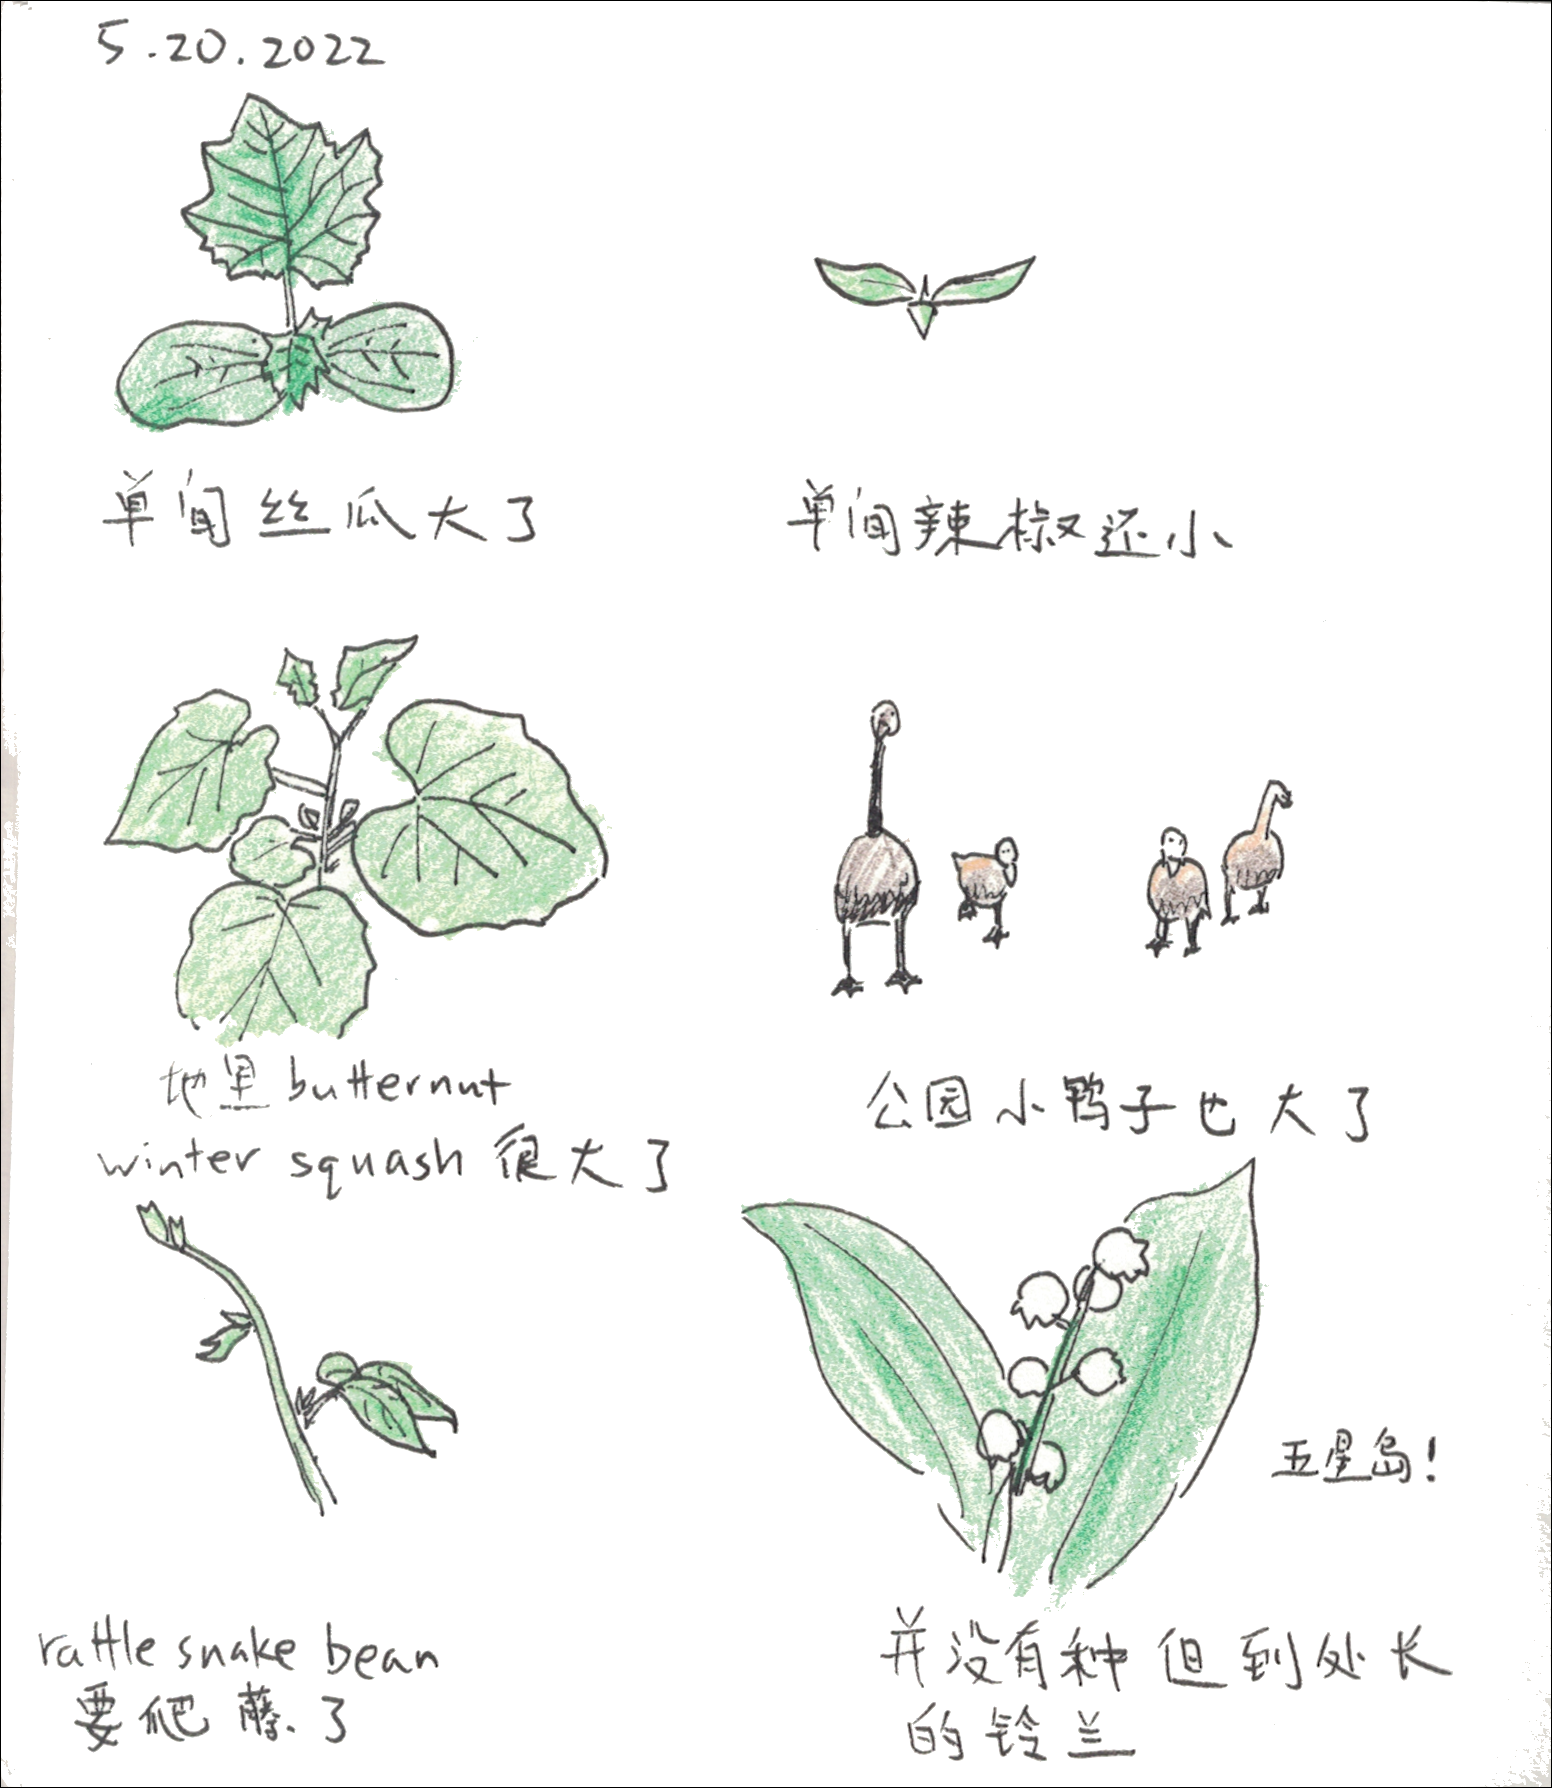 5.20.2022
单间丝瓜大了
单间辣椒还小
地里butternut
winter squash 很大了
公园小鸭子也大了
rattle snake bean
要爬藤了
五星岛!
并没有种但到处长
的铃兰